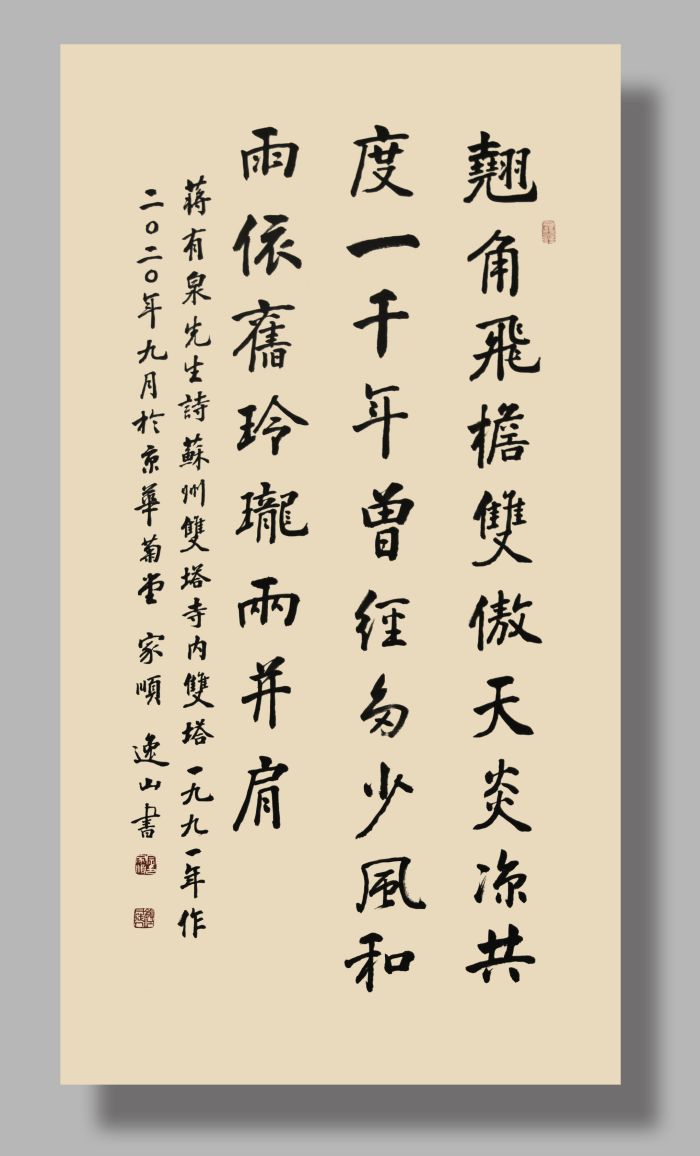 翹角飛檐雙傲天炎凉共
度一千年曾經多少風和
雨依舊玲瓏兩并肩
蔣有泉先生詩蘇州雙塔寺内雙塔一九九一年作
二〇二〇年九月於京華菊堂 家順 逸山書